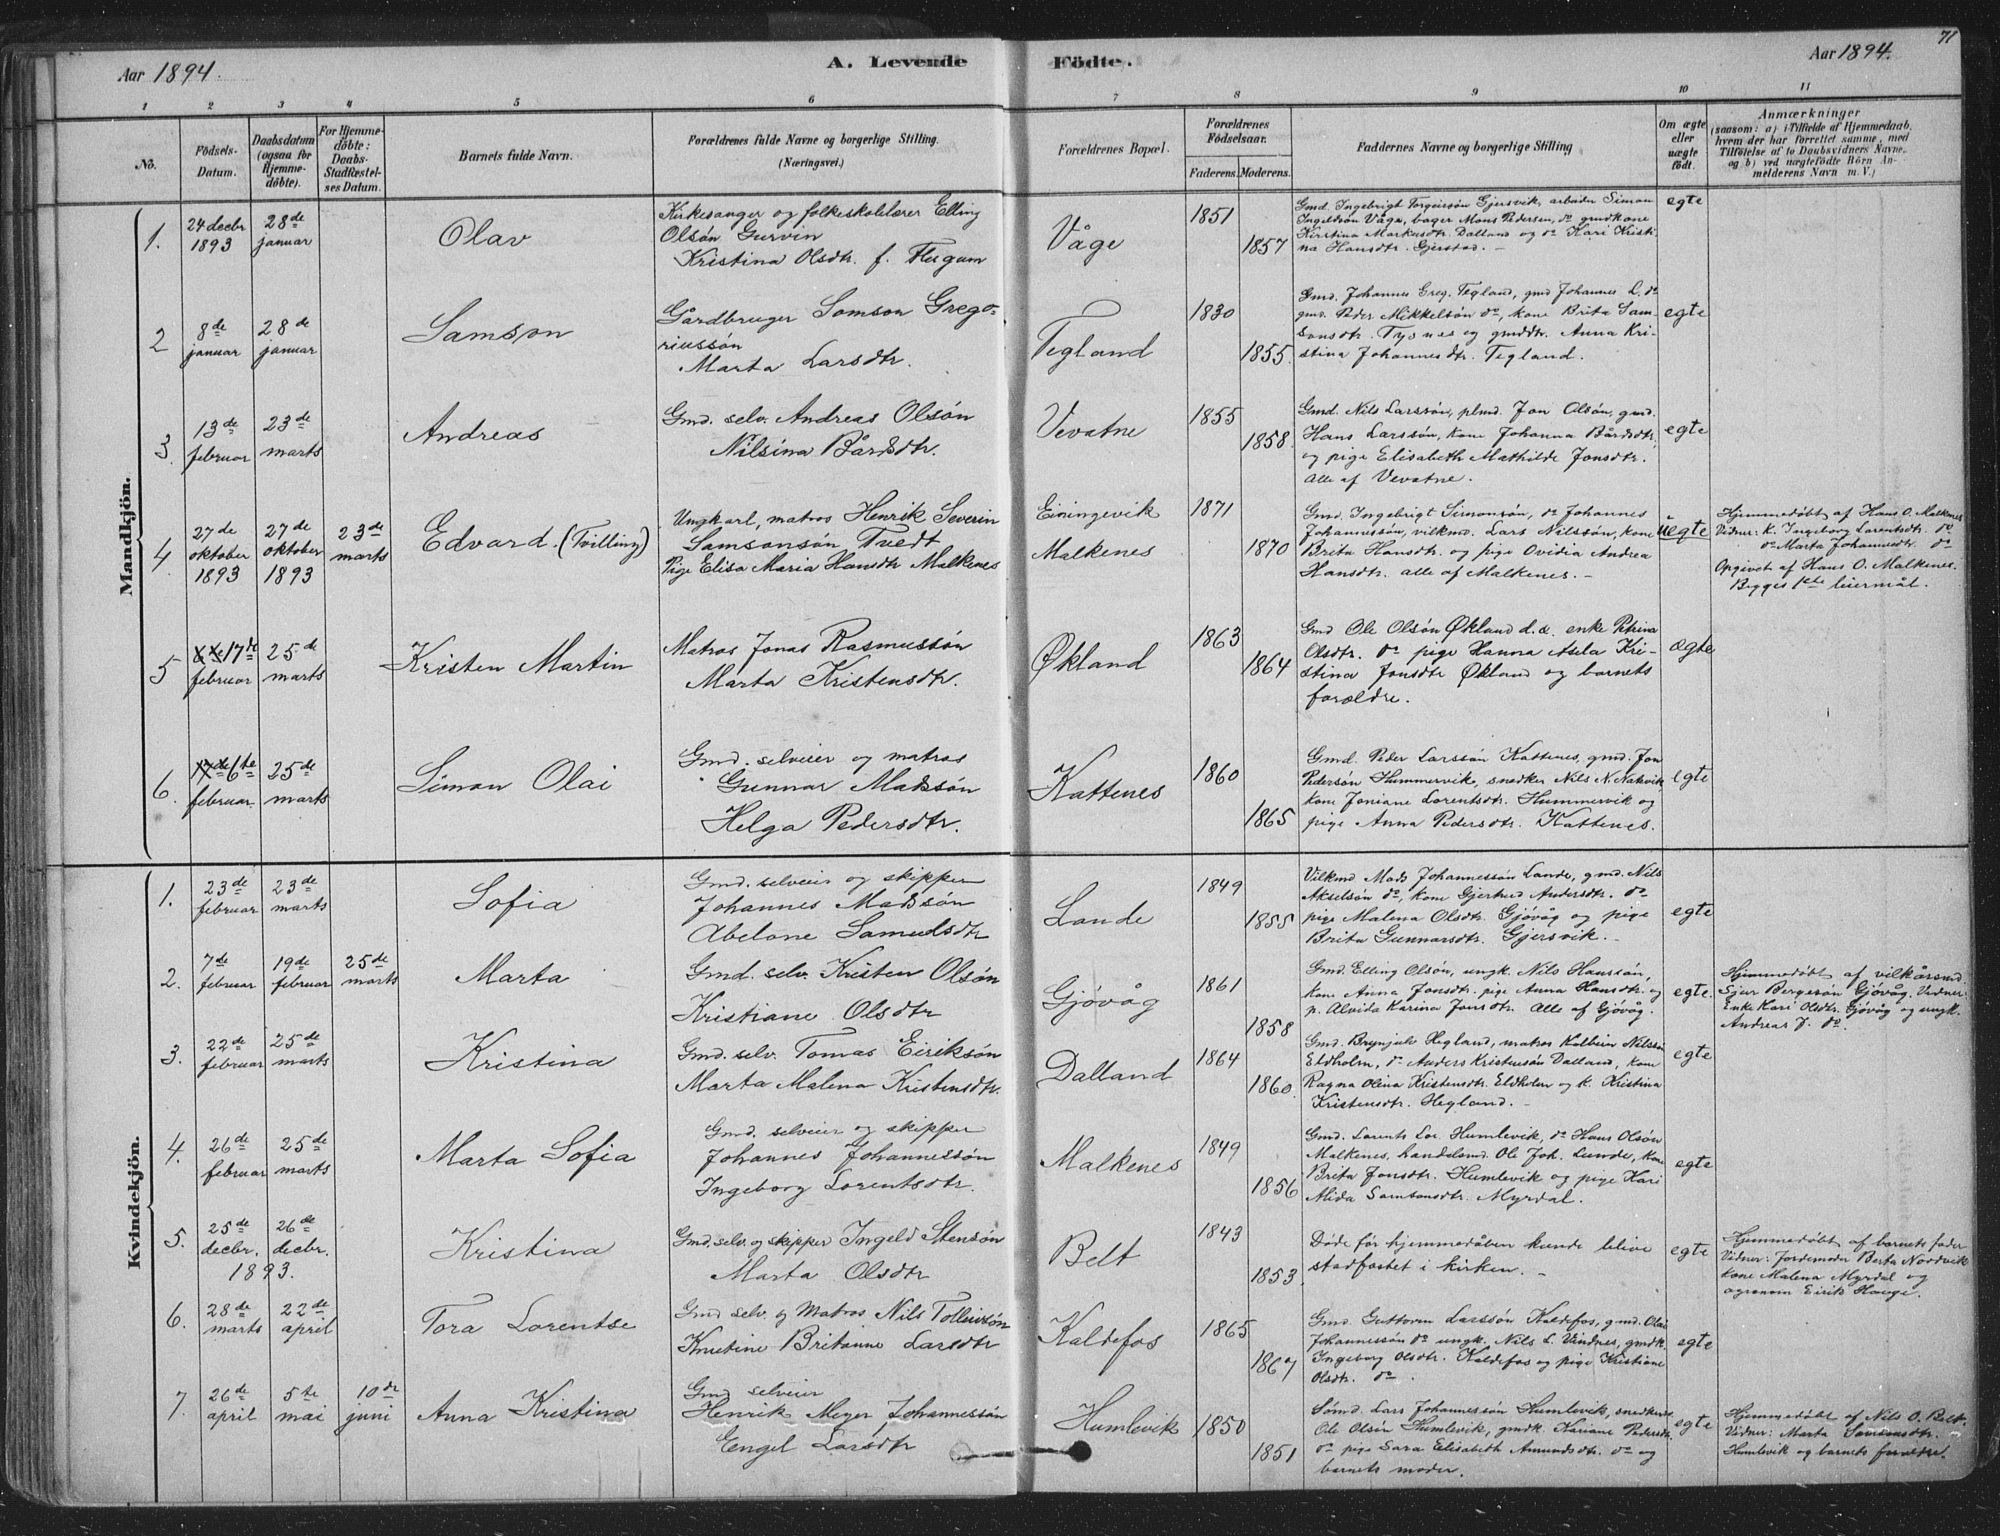 Aar 1894.
A. Levende Födte.
Aar 1894.
71
1 2 3 4 5 6 7 8 9 10 11
No.
Födsels-
Datum.
Daabsdatum
(ogsaa for
Hjemme-
döbte).
For Hjemme-
döbte:
Daabs-
Stadfæstel-
ses Datum.
Barnets fulde Navn.
Forældrenes fulde Navne og borgerlige Stilling.
(Næringsvei.)
Forældrenes Bopæl.
Forældrenes
Födselsaar.
Faderens. Moderens.
Faddernes Navne og borgerlige Stilling
Om ægte
eller
uægte
födt.
Anmærkninger
(saasom: a) i Tilfælde af Hjemmedaab,
hvem der har forrettet samme, med
Tilföielse af to Daabsvidners Navne,
og b) ved uægtefödte Börn An-
melderens Navn m. V.)
Mandkjön.
1.
24 decbr
1893
28de
januar
Olav
Kirkesanger og folkeskolelærer Elling
Olsön Gurvin
Kristina Olsdtr. f. Flugum
Våge
1851
1857
Gmd. Ingebrigt Torgeirsön Gjersvik, arbeider Simon
Ingeldsön Våge, bager Mons Pedersen, do gmdkone
Kirstina Markusdtr. Dalland og do Kari Kristi-
na Hansdtr. Gjerstad. -
egte
2
8de
januar
28de
januar
Samson
Gårdbruger Samson Grego-
riussön
Marta Larsdtr.
Tegland
1830
1855.
Gmd. Johannes Greg. Tegland, gmd Johannes L. do
gmd. Peder Mikkelsön do, kone Brita Sam-
sonsdtr. Tysnes og gmddtr. Anna Kri-
stina Johannesdtr. Tegland.
egte
3.
13de
februar
23de
marts
Andreas
Gmd. selv. Andreas Olsön
Nilsina Bårdsdtr.
Vevatne
1855
1858
Gmd. Nils Larssön, plmd. Jon Olsön, gmd.
Hans Larssön, kone Johanna Bårdsdtr.
og pige Elisabeth Mathilde Jonsdtr.
alle af Vevatne.
egte
4.
27de
oktober
1893
27de
oktober
1893
23de
marts
Edvard. (Tvilling)
Ungkarl, matros Henrik Severin
Samsonsön Tvedt
Pige Elisa Maria Hansdtr Malkenes
Einingevik
Malkenes
1871
1870
Gmd. Ingebrigt Simonsön, do Johannes
Johannessön, vilkmd. Lars Nilssön, kone
Brita Hansdtr. og pige Ovidia Andrea
Hansdtr. alle af Malkenes. -
uegte
Hjemmedöbt af Hans O. Malkenes
Vidner: K. Ingeborg Lorentsdtr. do
do Marta Johannesdtr. do
Opgivet af Hans O. Malkenes.
Begges 1ste leiermål.
5
17de
februar
25de
marts
Kristen Martin
Matros Jonas Rasmussön
Marta Kristensdtr.
Økland
1863
1864
Gmd Ole Olsön Økland d.æ. enke Petrina
Olsdtr. do pige Hanna Asela Kri-
stina Jonsdtr Økland og barnets
forældre.
ægte
6.
17de 6te
februar
25de
marts
Simon Olai
Gmd. selveier og matros
Gunnar Madssön
Helga Pedersdtr.
Kattenes
1860
1865
Gmd. Peder Larssön Kattenes, gmd. Jon
Pedersön Hummervik, snedker Nils N. Nakvik
kone Joniane Lorentsdtr. Hummervik og
pige Anna Pedersdtr. Kattenes.
egte
Kvindekjön.
1.
23de
februar
23de
marts
Sofia
Gmd. selveier og skipper
Johannes Madssön
Abelone Samuelsdtr
Lande
1849
1855
Vilkmd Mads Johannessön Lande, gmd. Nils
Akselsön do, kone Gjertrud Andersdtr. do
pige Malena Olsdtr. Gjövåg og pige
Brita Gunnarsdtr. Gjersvik. -
egte
2.
7de
februar
19de
februar
25de
marts
Marta
Gmd. selv. Kristen Olsön
Kristiane Olsdtr
Gjövåg
1861
1858
Gmd. Elling Olsön, ungk. Nils Hanssön,
kone Anna Jonsdtr. pige Anna Hansdtr. og
p. Alvida Karina Jonsdtr. Alle af Gjövåg.
egte.
Hjemmedöbt af vilkårsmd
Sjur Bergesön Gjövåg. Vidner:
Enke Kari Olsdtr. Gjövåg og ungk.
Andreas J. do.
3.
22de
februar
25de
marts
Kristina
Gmd. selv. Tomas Eiriksön
Marta Malena Kristensdtr.
Dalland
1864
1860.
Gmd. Brynjulv Hegland, matros Kolbein Nilssön
Eldholm, do Anders Kristensön Dalland, kone
Ragna Olina Kristensdtr. Eldholm og k. Kristina
Kristensdtr. Hegland. -
egte
4.
26de
februar
25de
marts
Marta Sofia
Gmd. selveier og skipper
Johannes Johannessön
Ingeborg Lorentsdtr.
Malkenes
1849
1856
Gmd. Lorents Lor. Humlevik, do Hans Olsön
Malkenes, handelsmd. Ole Joh. Lunde, kone
Brita Jonsdtr. Humlevik og pige Kari
Alida Samsonsdtr. Myrdal.
egte
5.
25de
decbr.
1893.
26de
decbr.
Kristina
Gmd. selv. og skipper Ingeld Stensön
Marta Olsdtr
Belt
1843
1853.
Döde för hjemmedåben kunde blive
stadfæstet i kirken. -
egte
Hjemmedöbt af barnets fader
Vidner: Jordemoder Berta Nordvik
kone Malena Myrdal og
agronom Eirik Hauge.
6.
28de
marts
22de
april
Tora Lorentse
Gmd selv. og Matros Nils Tolleivsön
Knutine Britanne Larsdtr
Kaldefos
1865
1867
Gmd. Guttorm Larssön Kaldefos, gmd. Olai
Johannessön do ungk. Nils L. Vindnes, gmdk.
Ingeborg Olsdtr. Kaldefos og pige Kristiane
Olsdtr. do
egte
7.
26de
april
5te
mai
10de
juni
Anna Kristina
Gmd selveier
Henrik Meyer Johannessön
Engel Larsdtr
Humlevik
1850
1851
Sömd. Lars Johannessön Humlevik, snedker
Ole Olsön Humlevik, gmdk. Kariane Pedersdtr.
do pige Sara Elisabeth Amundsdtr. do og
barnets moder.
egte
Hjemmedöbt af Nils O. Belt.
Vidner: Marta Samsonsdtr.
Humlevik og barnets forældre.